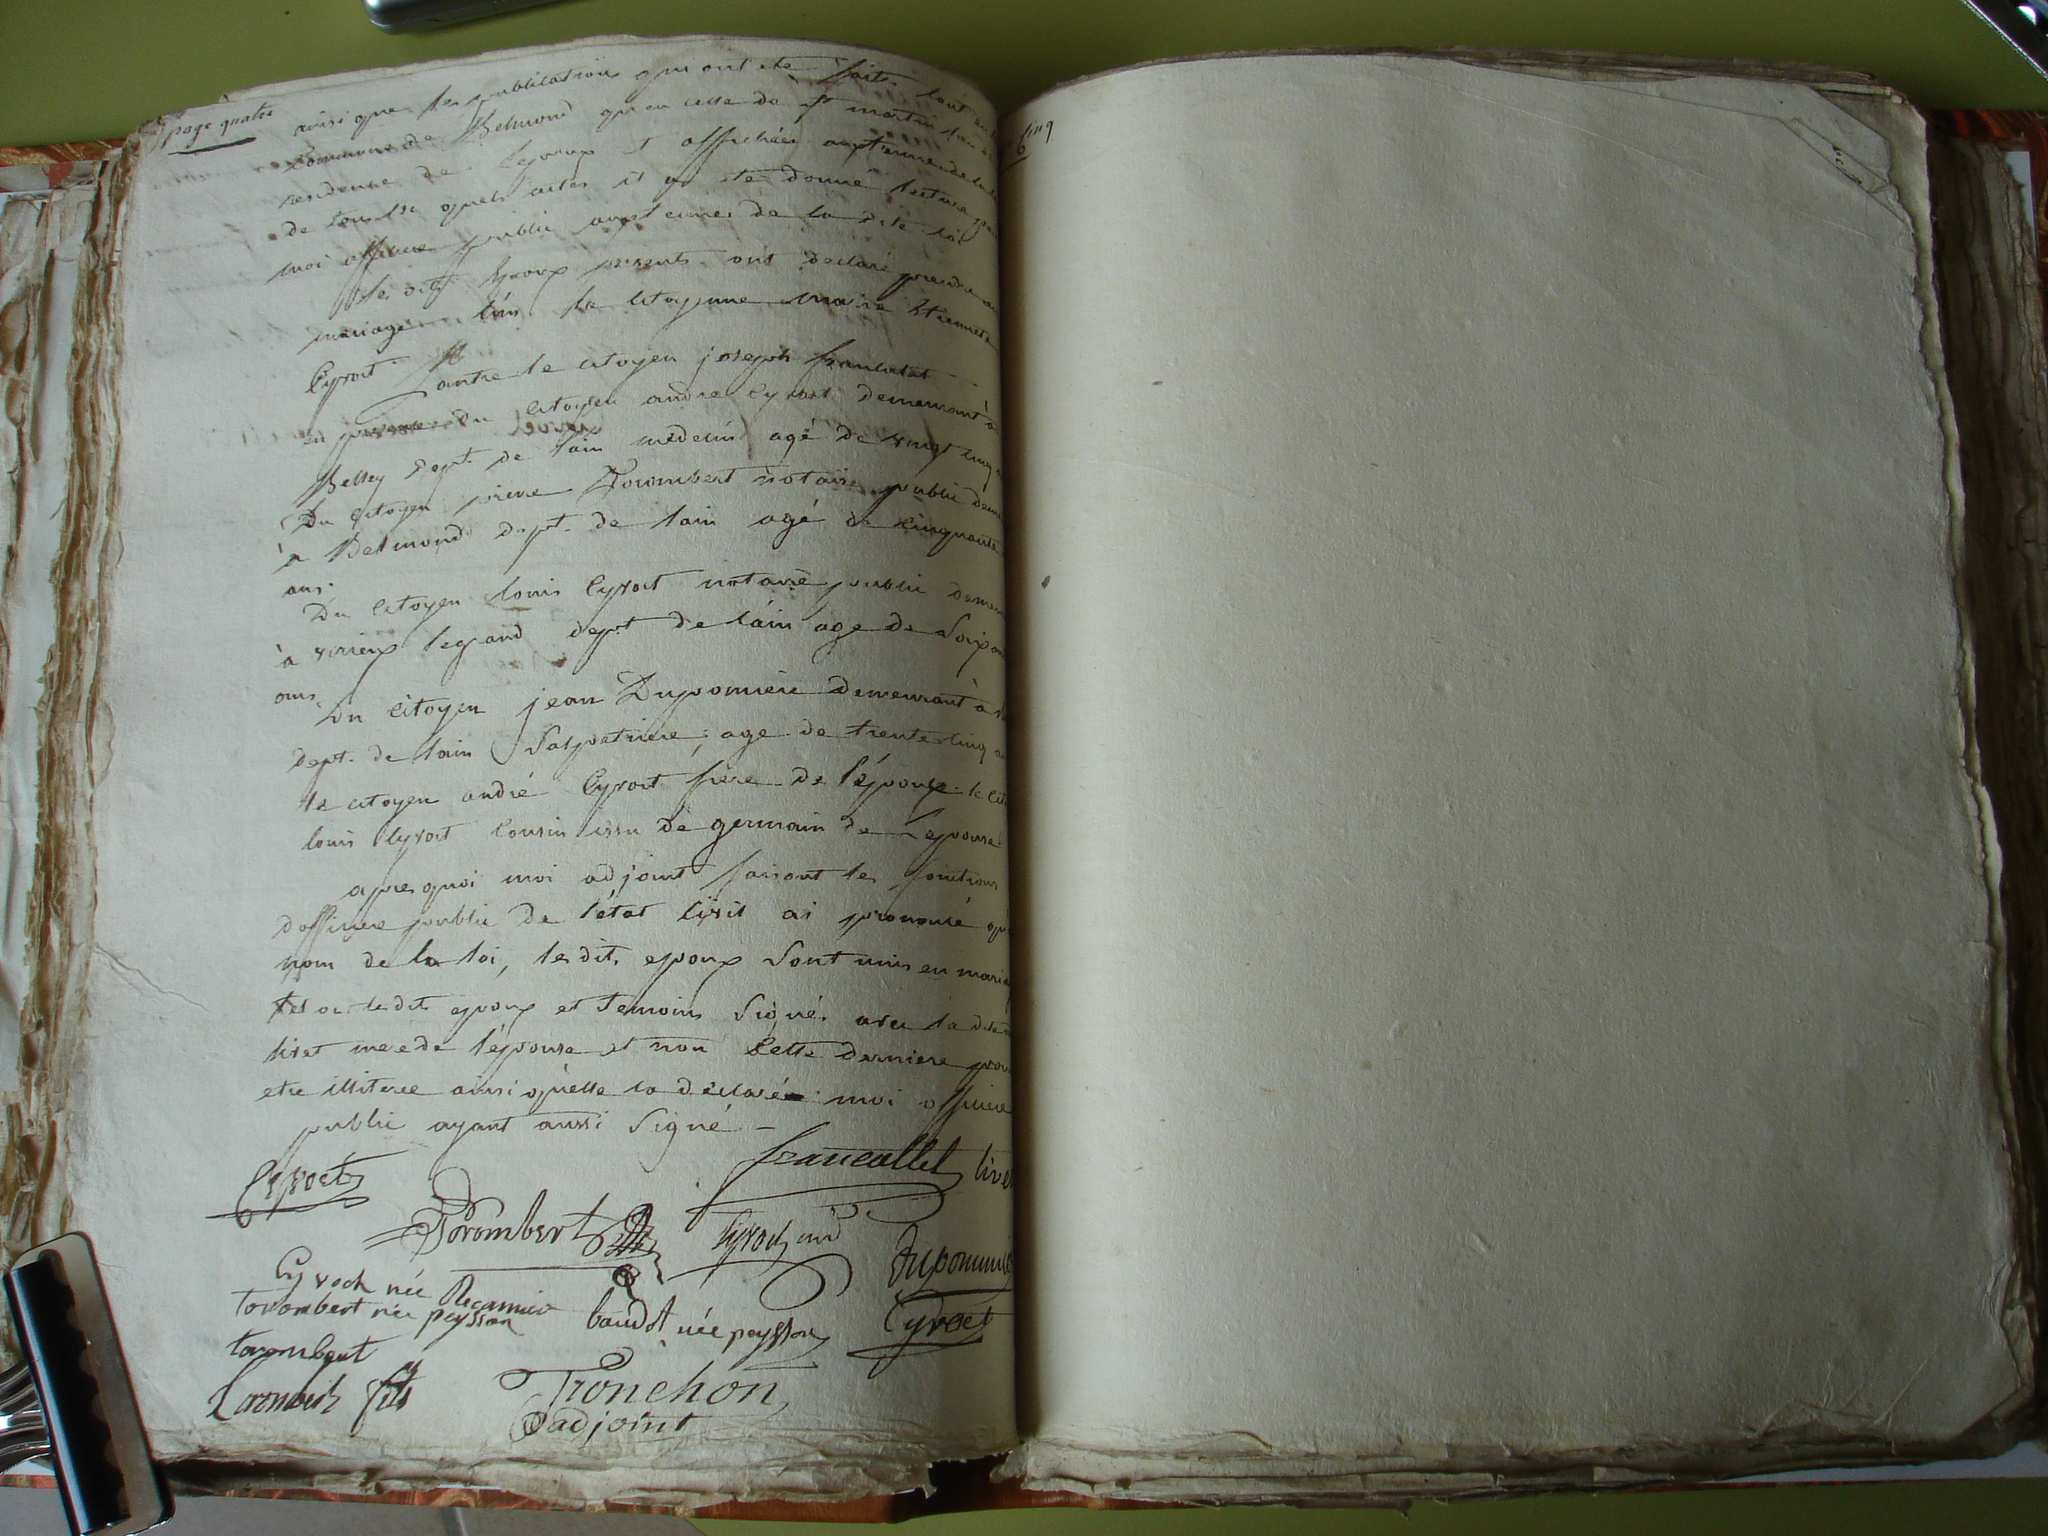 page quatre
ainsi que les publications qui ont ete faites tant en
commune de Belmond qu'en celle de st martin
residence de l'epoux et affichées aux termes de la
de tous les quels actes il a ete donné lecture par
moi officier public aux termes de la dite loi
les dits epoux presents ont declaré prendre en
mariage l'un la citoyenne marie Etiennete
Cyvoct l'autre le citoyen joseph francalet
en presence du citoyen andré Cyvoct demeurant à
Belley dept. de lain medecin agé de vingt cinq
Du citoyen pierre Torombert notaire public
à Belmond dept. de lain agé de cinquante
ans
Du citoyen louis Cyvoct notaire public
à virieux legrand dept de lain age de Soix
ans
Du citoyen jean Dupomiere demeurant à
dept. de lain Salpetriere, age de trente cinq
le citoyen andré Cyvoct frere de l'épouse le cit
louis Cyvoct cousin issu de germain de Lepouse
apres quoi moi adjoint faisant les fonctions
dofficier public de l'état civil ai prononcé qu'
nom de la loi, les dits epoux Sont unis en maria
et ont les dits epoux et temoins Signés avec la dite
livet mere de l'épouse et non cette derniere pour
etre illiteree ainsi qu'elle la déclaré moi officier
public ayant aussi Signé –
Cyvoct francallet live
Torombert Cyvoct Dupomm
Cyvoch née Recamier
torombert née peysson baudot née peysson Cyvoct
torombert
fils Tronchon
adjoint
Cinq
6